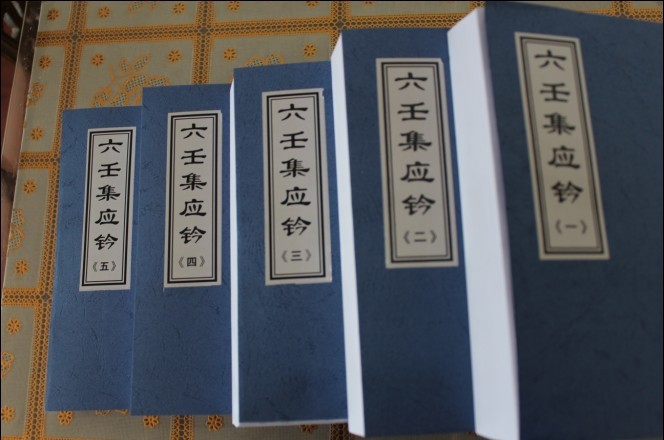 六壬集应钤
《一》
六壬集应钤
《二》
六壬集应钤
《三》
六壬集应钤
《四》
六壬集应钤
《五》